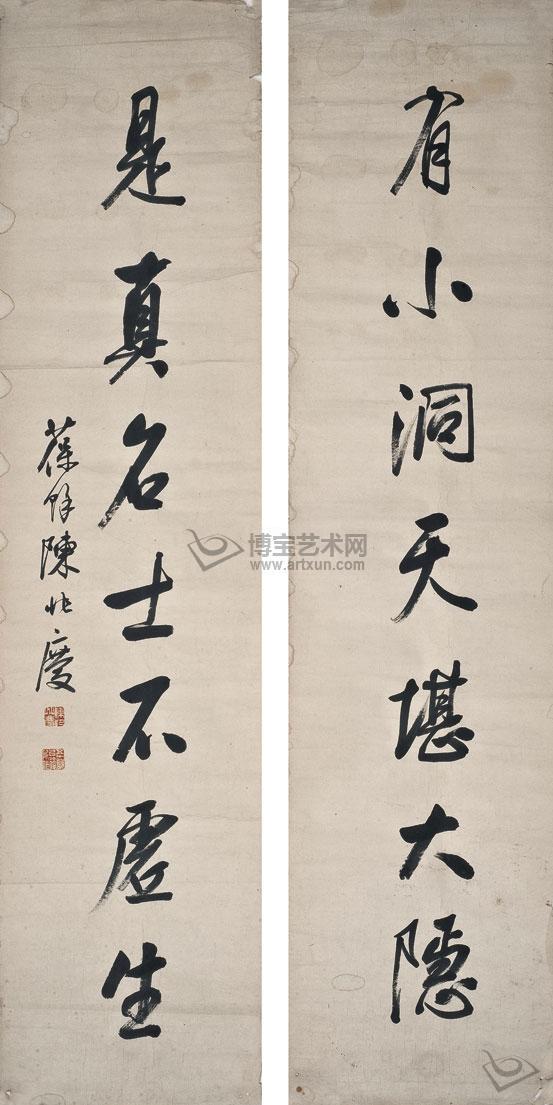 有小洞天堪大隱
是真名士不虛生
葆餘陳兆慶
博宝艺术网
www.artxun.com